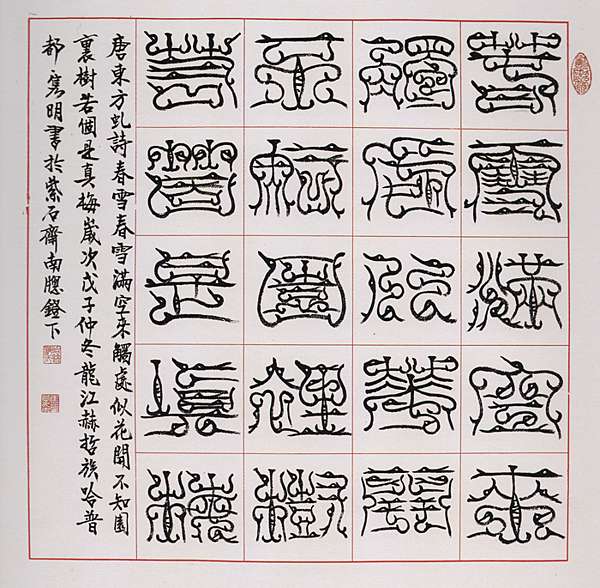 春雪滿空來
觸處似花開
不知園裏樹
若個是真梅
唐東方虬詩春雪春雪滿空來觸處似花開不知園
裏樹若個是真梅歲次戊子仲冬龍江赫哲族哈普
都雋明書於紫石齋南牕鐙下